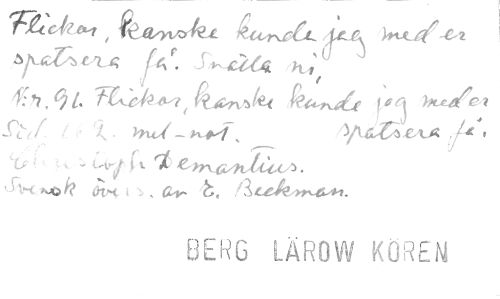 Flickor, kanske kunde jag med er
spatsera få. Snälla ni,
N:r. 91. Flickor, kanske kunde jag med er
Sid. 112. mel-not. spatsera få.
Christoph Demantius.
Svensk övers. av E. Beckman.
BERG LÄROW KÖREN